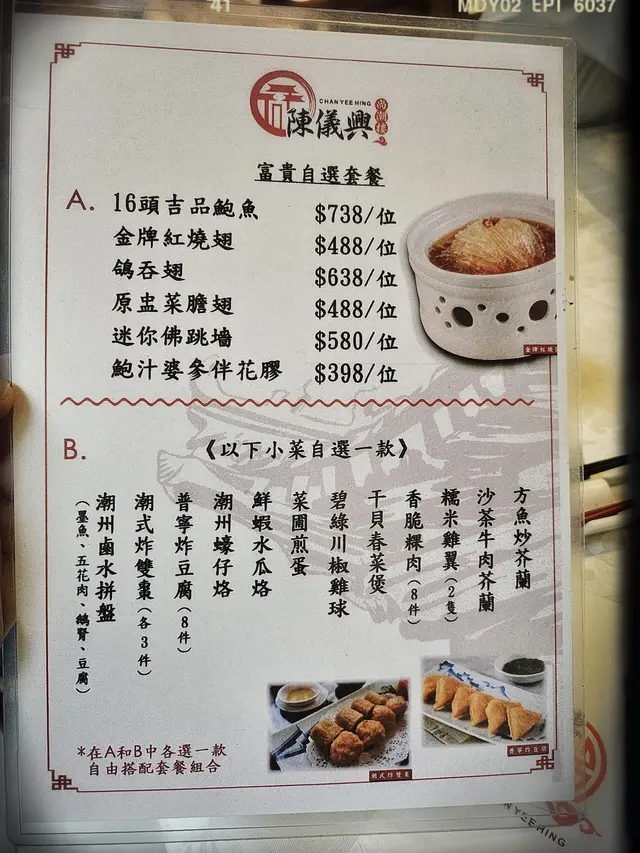 41
MDY02 EPT 6037
CHAN YEE HING
陳儀興
尚潮樓
富貴自選套餐
A. 16頭吉品鮑魚 $738/位
金牌紅燒翅 $488/位
鴿吞翅 $638/位
原盅菜膽翅 $488/位
迷你佛跳墻 $580/位
鮑汁婆參伴花膠 $398/位
金牌紅燒
B. 《以下小菜自選一款》
方魚炒芥蘭
沙茶牛肉芥蘭
糯米雞翼(2隻)
香脆粿肉(8件)
干貝春菜煲
碧綠川椒雞球
菜圃煎蛋
鮮蝦水瓜烙
潮州蠔仔烙
普寧炸豆腐(8件)
潮式炸雙棗(各3件)
潮州鹵水拼盤
(墨魚、五花肉、鵝腎、豆腐)
普寧炸豆腐
潮式炸雙棗
*在A和B中各選一款
自由搭配套餐組合
AN YEE HING